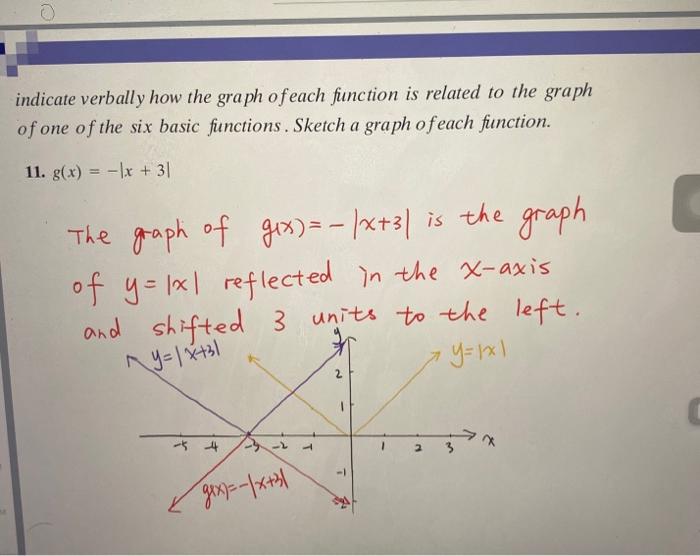 indicate verbally how the graph of each function is related to the graph
of one of the six basic functions. Sketch a graph of each function.
11. g(x) = -|x + 3|
The graph of g(x) = - |x+3| is the graph
of y = |x| reflected in the x-axis
and shifted 3 units to the left.
y
y=|x+3|
y=|x|
2
1
-5 -4 -3 -2 -1 1 2 3 x
-1
g(x)=-|x+3|
-2